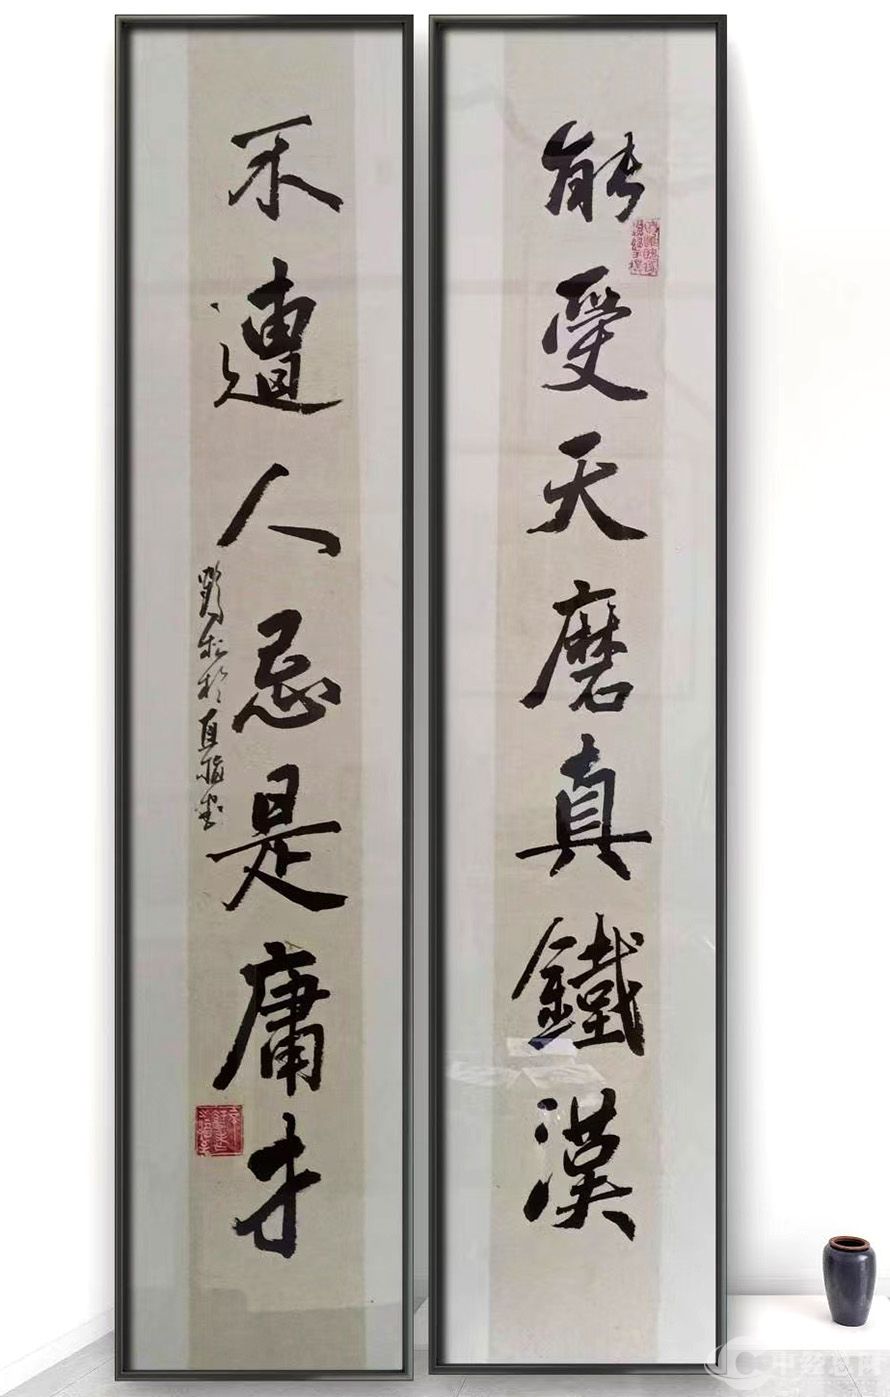 能受天磨真鐵漢
不遭人忌是庸才